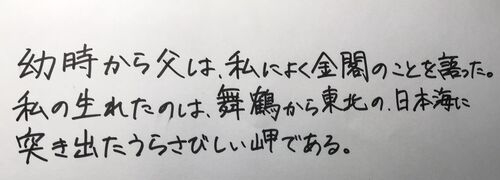 幼時から父は、私によく金閣のことを語った。
私の生れたのは、舞鶴から東北の、日本海に
突き出たうらさびしい岬である。